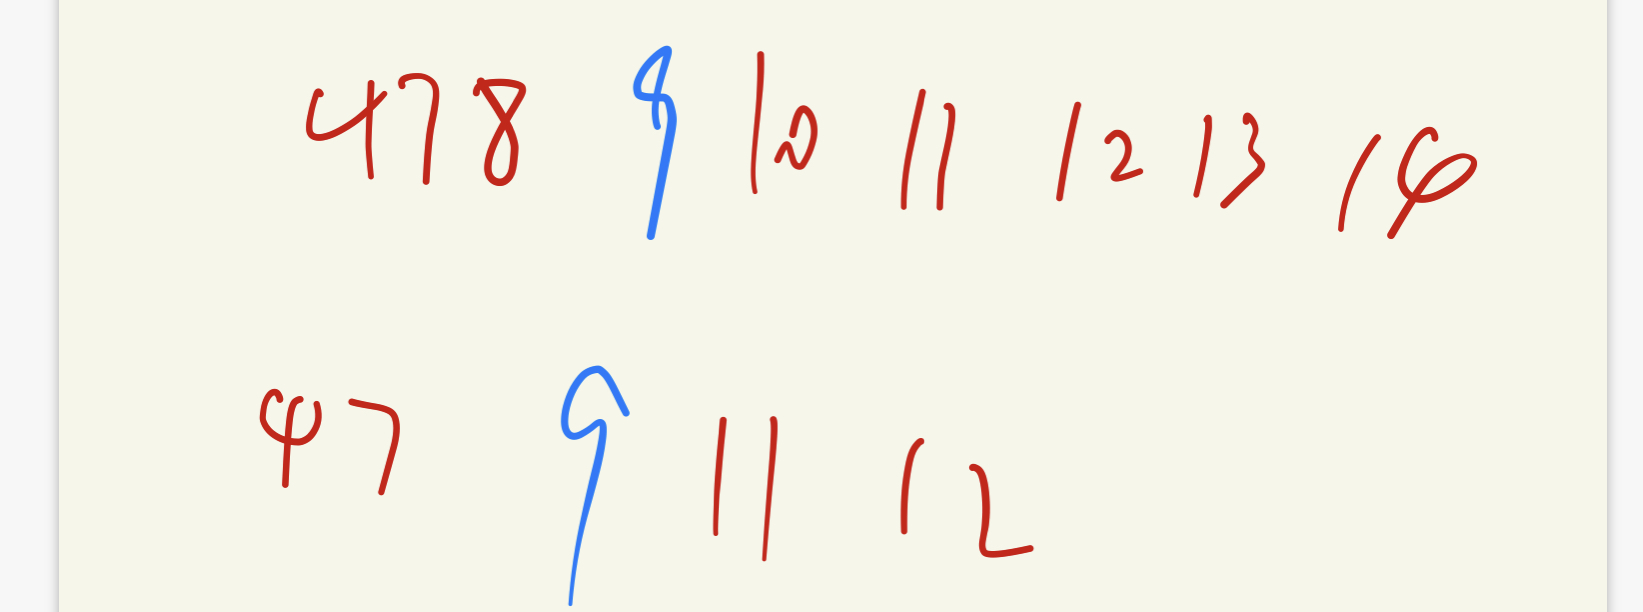 478 9 10 11 12 13 14
47 9 11 12